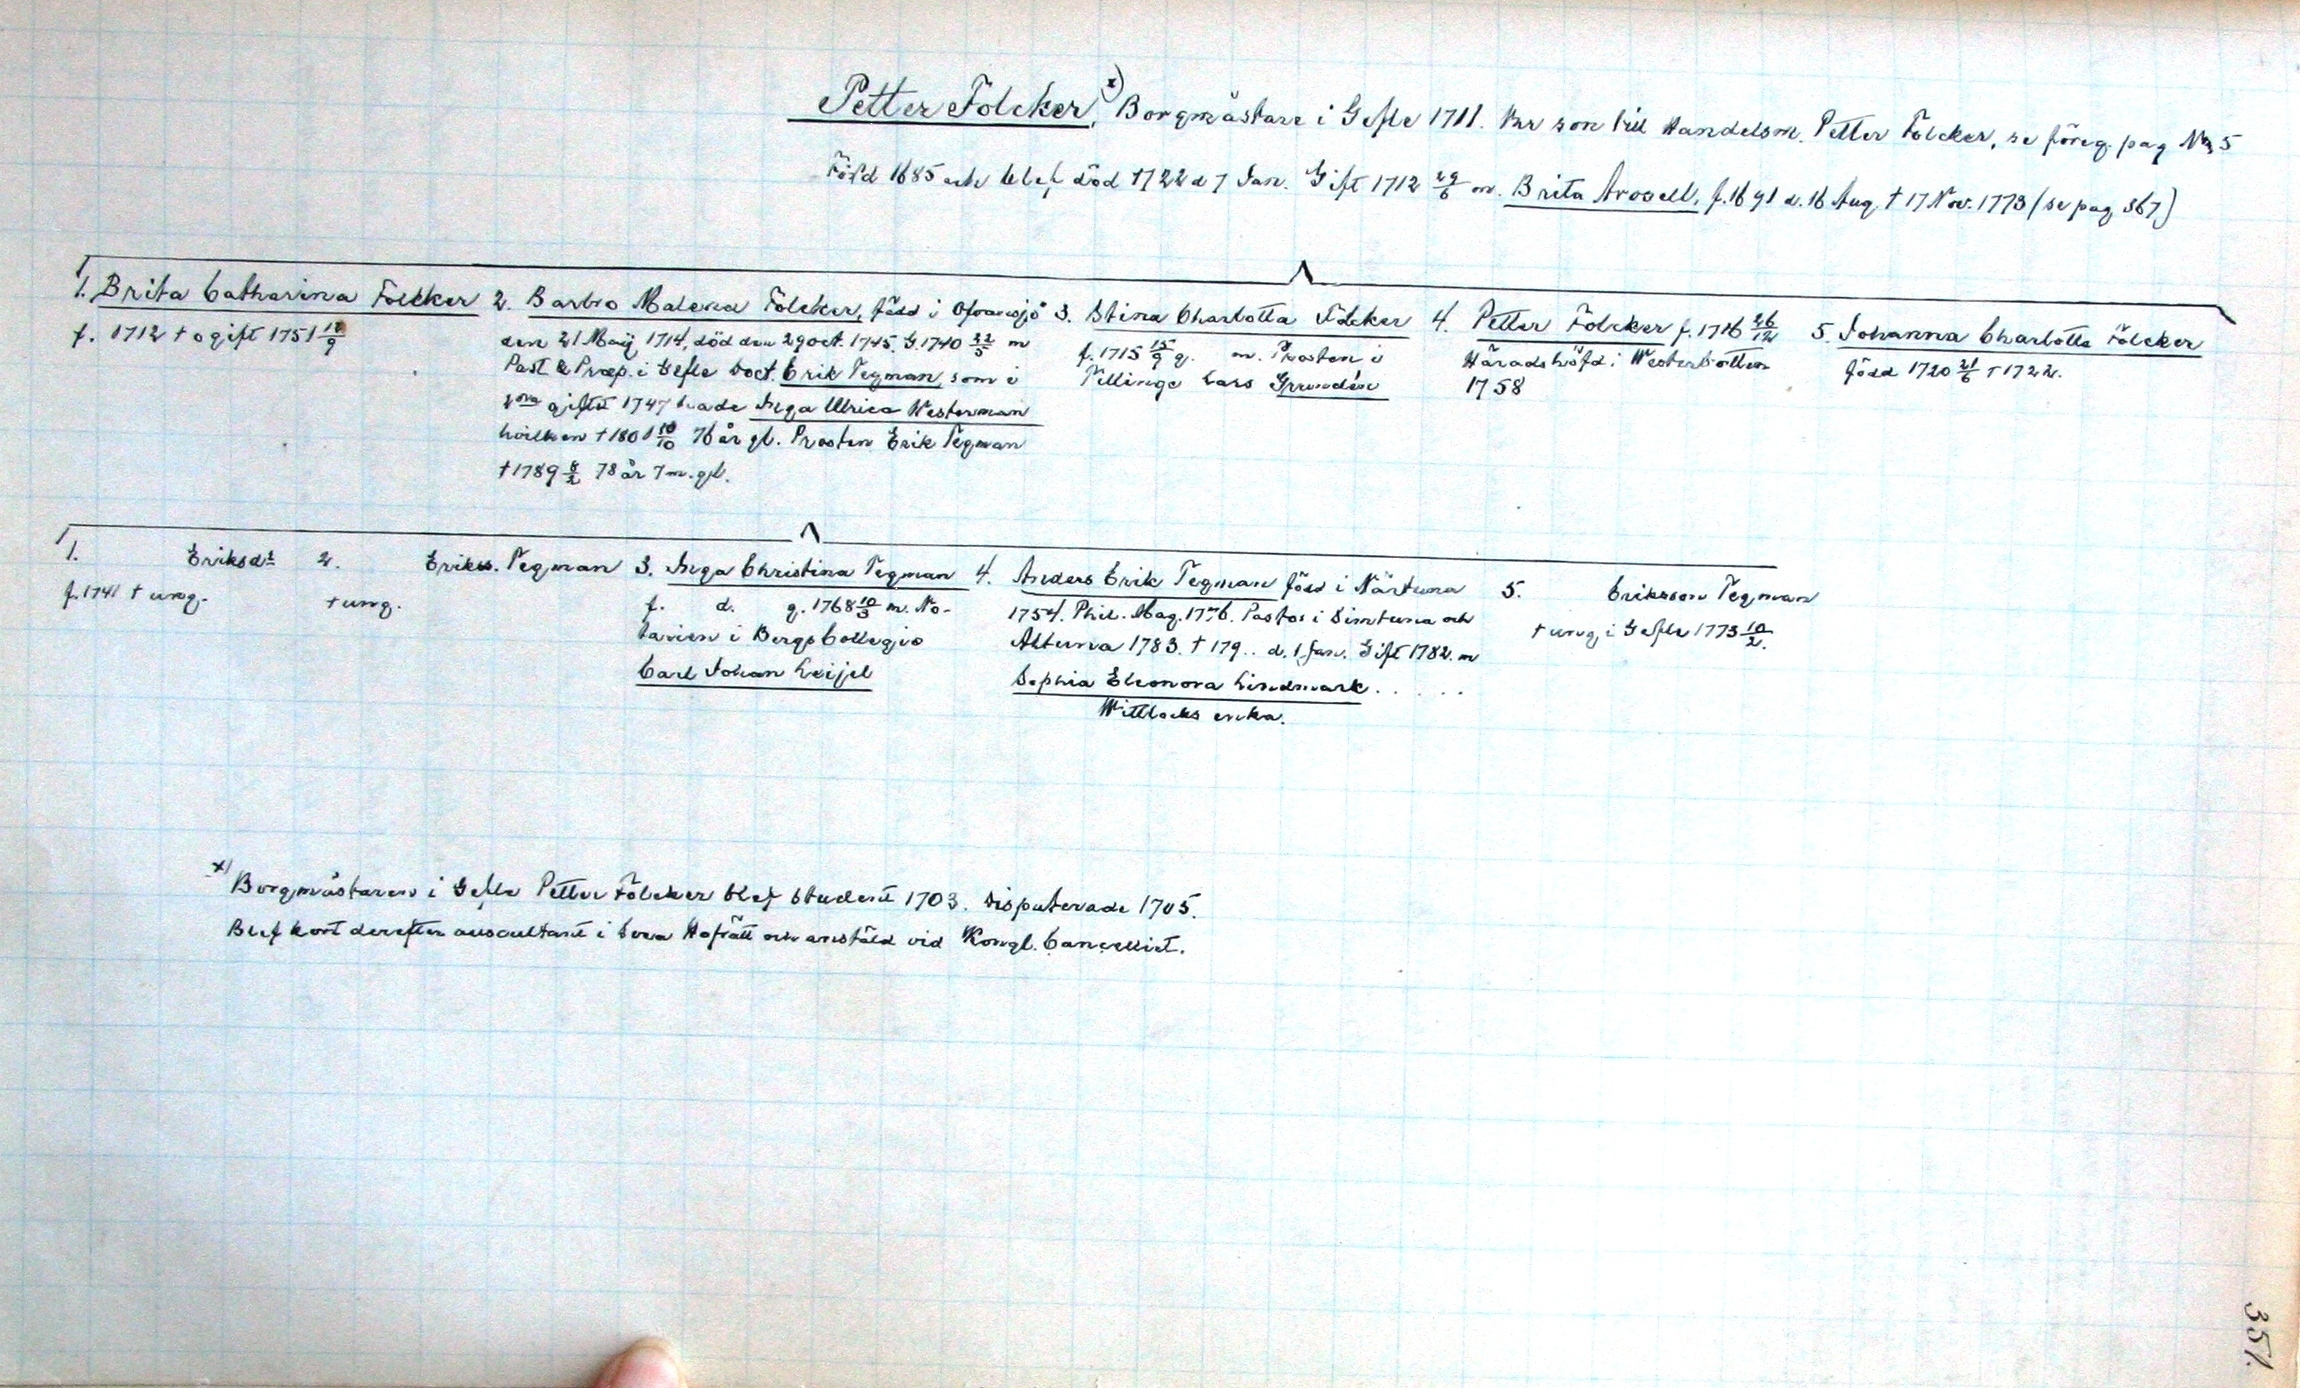 Petter Folcker, x) Borgmästare i Gefle 1711. Var son till Handelsm. Petter Folcker, se föreg. pag No 5
Född 1685 och blef död 1722 d 7 Jan. Gift 1712 29/6 m. Brita Arosell, f. 1691 d. 16 Aug. † 17 Nov. 1773 (se pag 367)
1. Brita Catharina Folcker
f. 1712 † ogift 1751 12/9
2. Barbro Malena Folcker, född i Ofvansjö
den 21 Maij 1714, död den 29 oct. 1745. G. 1740 22/5 m
Past & Præp. i Gefle Doct. Erik Tegman, som i
2dra giftet 1747 hade Inga Ulrica Westerman
hvilken † 1801 10/10 76 år gl. Prosten Erik Tegman
† 1789 8/2 78 år 7 m. gl.
3. Stina Charlotta Folcker
f. 1715 15/9 g. m. Prosten i
Tillinge Lars Grundén
4. Petter Folcker f. 1716 26/12
Häradshöfd. i Westerbotten
1758
5. Johanna Charlotta Folcker
född 1720 21/6 † 1722.
1. Eriksdr
f. 1741 † ung.
2. Eriks. Tegman
† ung.
3. Inga Christina Tegman
f. d. g. 1768 10/3 m. No-
tarien i Bergs Collegio
Carl Johan Leijel
4. Anders Erik Tegman född i Närtuna
1754. Phil. Mag. 1776. Pastor i Simtuna och
Altuna 1783. † 179.. d. 1 Jan. Gift 1782. m
Sophia Eleonora Lindmark . . . . .
Wittlocks enka.
5. Eriksson Tegman
† ung i Gefle 1773 10/2.
x) Borgmästaren i Gefle Petter Folcker blef Student 1703. Disputerade 1705.
Blef kort derefter auscultant i Svea Hofrätt och anstäld vid Kongl. Cancelliet.
351.